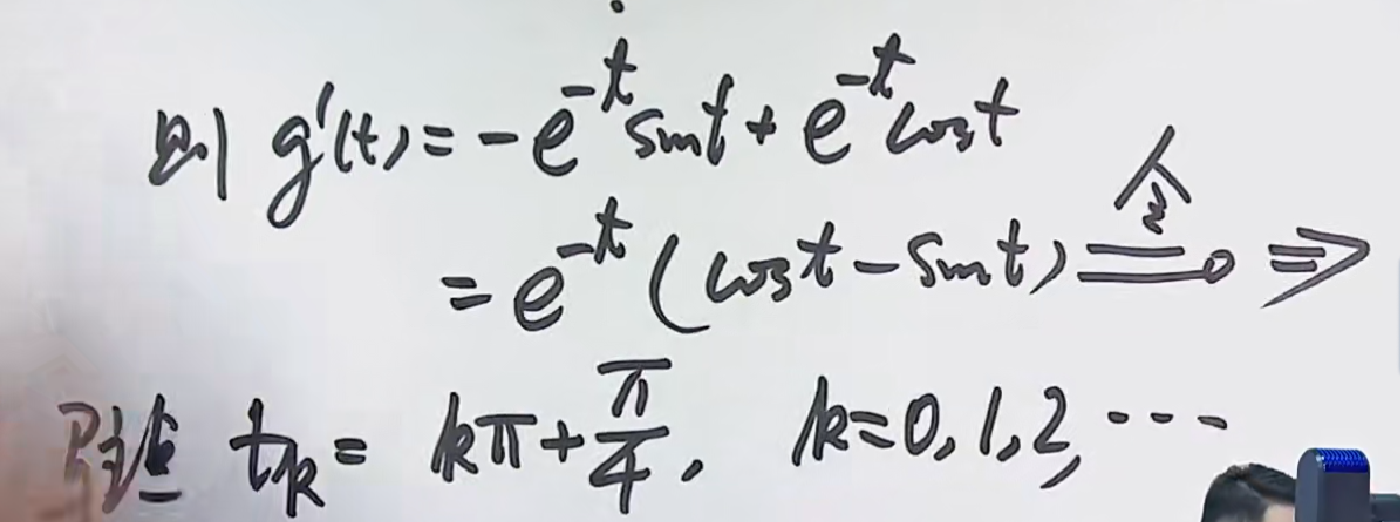 则 g'(t) = -e^{-t} sin t + e^{-t} cos t
= e^{-t} (cos t - sin t) \overset{令}{=} 0 ⇒
驻点 t_k = kπ + π/4, k = 0, 1, 2, ⋯